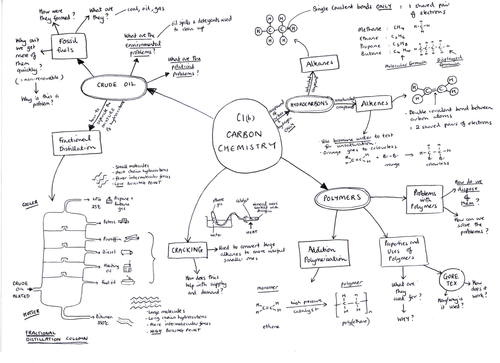 C1(b)
CARBON
CHEMISTRY
CRUDE OIL
Fossil
fuels
How were
they formed?
What are
they?
coal, oil, gas
Why can't
we get
more of
them
quickly?
(: non-renewable)
Why is this a
problem?
What are the
environmental
problems?
oil spills & detergents used
to clean up
What are the
political
problems?
Fractional
Distillation
- Small molecules
- Short chain hydrocarbons
- fewer intermolecular forces
- Low BOILING POINT
COOLER
LPG
25°C
Propane +
butane
gas
Petrol
Paraffin
Diesel
Heating
oil
Fuel oil
CRUDE
OIL
HEATED
HOTTER
Bitumen
350°C
- Large molecules
- Long chain hydrocarbons
- More intermolecular forces
- HIGH BOILING POINT
FRACTIONAL
DISTILLATION COLUMN
HYDROCARBONS
Alkanes
Single Covalent bonds ONLY = 1 shared pair
of electrons
Methane : CH4
Ethane : C2H6
Propane : C3H8
Butane : C4H10
Molecular formula
Displayed
Alkenes
- Double covalent bond between
carbon atoms
= 2 shared pairs of electrons
- Use bromine water to test
for unsaturation
- Orange goes to colourless
+ Br-Br
orange
colourless
CRACKING
- Used to convert large
alkanes to more useful
smaller ones
How does this
help with supply
and demand?
HEAT
POLYMERS
Problems with
Polymers
How do we
dispose
of
them?
How can we
solve the
problems?
Addition
Polymerisation
monomer
ethene
high pressure
catalyst
polymer
poly(ethene)
Properties and
Uses of
Polymers
What are
they
used for?
WHY?
GORE
TEX
How does
it work?
Why is it
used?